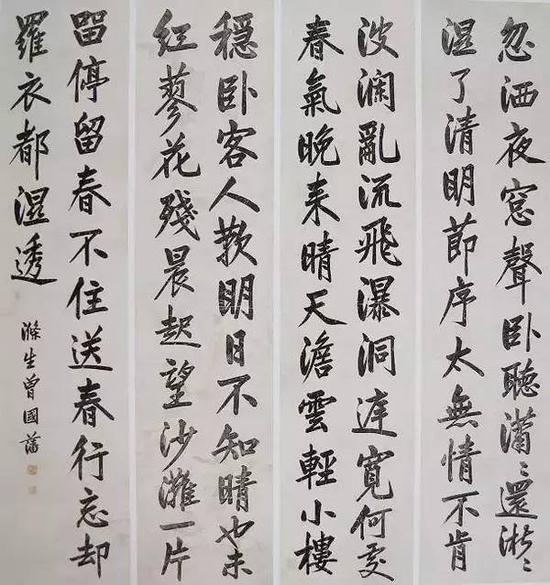 忽洒夜窓聲卧聽瀟〻還淅〻
濕了清明節序太無情不肯
波瀾亂流飛瀑洞庭寬何處
春氣晚来晴天澹雲輕小樓
穩卧客人歎明日不知晴也未
红蓼花殘晨起望沙灘一片
留停留春不住送春行忘却
羅衣都濕透
滌生曾國藩